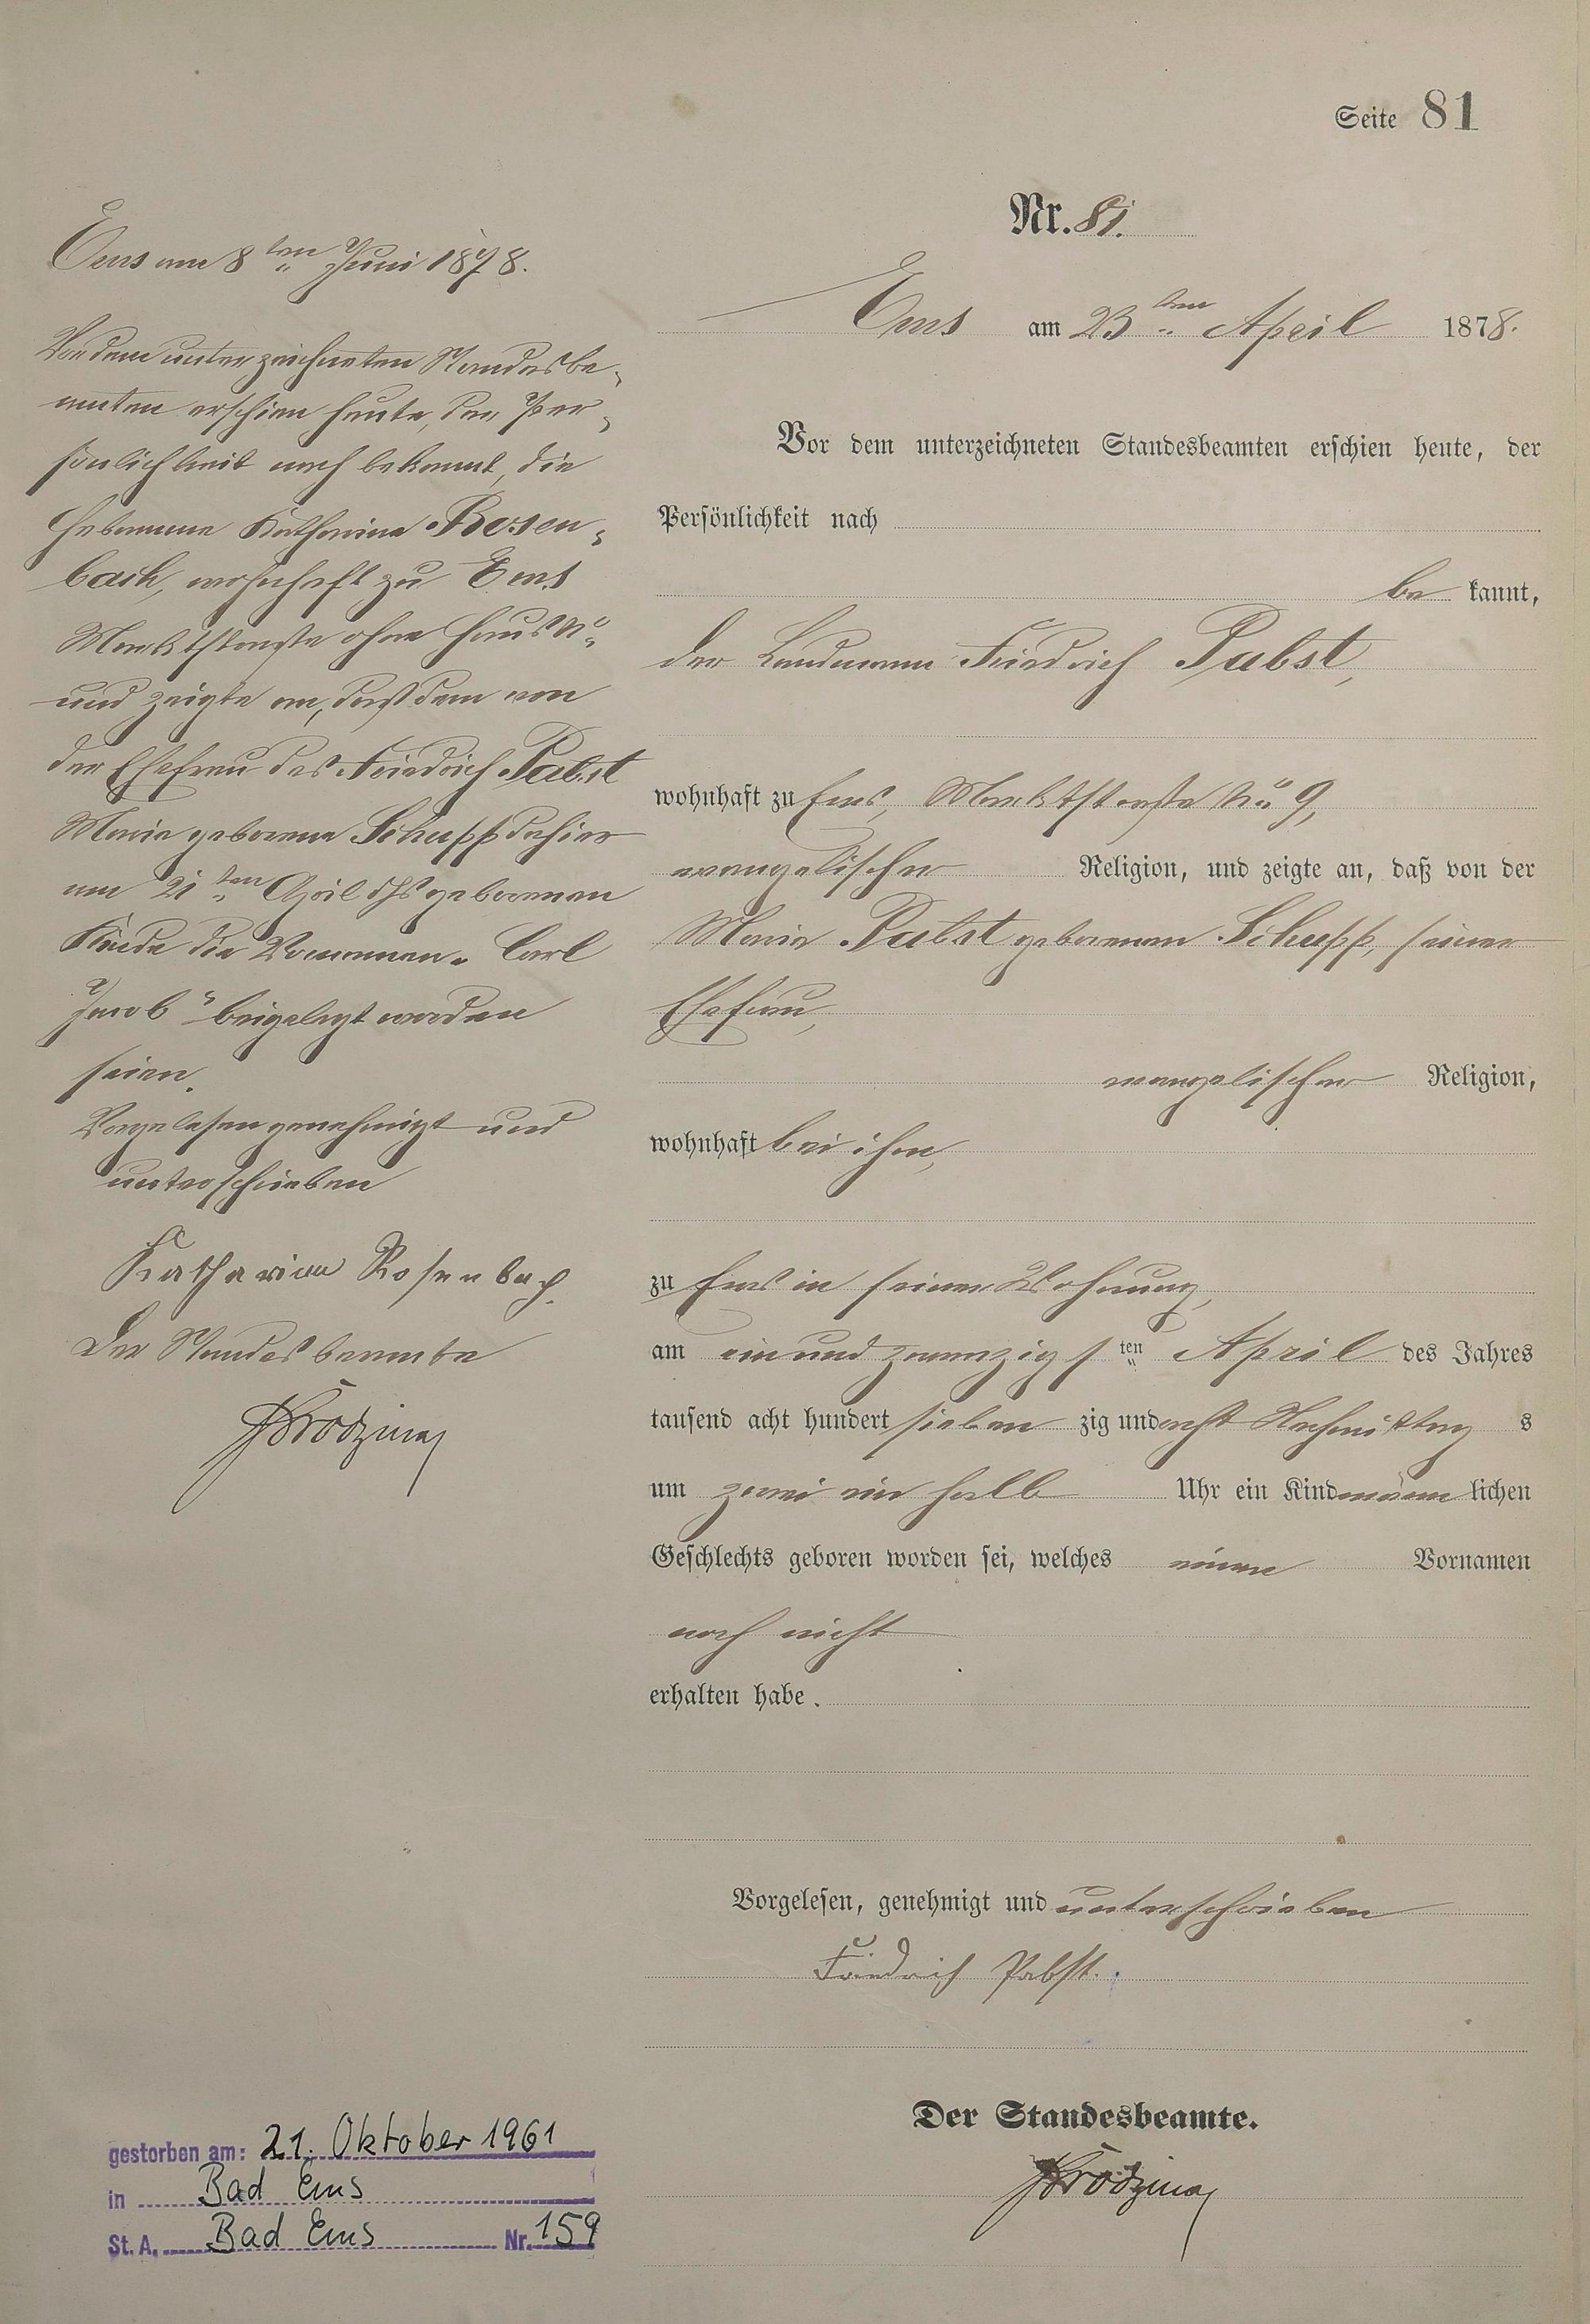 Seite 81
Nr. 81.
Ems am 23ten April 1878.
Vor dem unterzeichneten Standesbeamten erschien heute, der
Persönlichkeit nach
be kannt,
der Landmann Friedrich Pabst,
wohnhaft zu Ems, Marktstraße No 9,
evangelischer Religion, und zeigte an, daß von der
Maria Pabst geborenen Schupp, seiner
Ehefrau,
evangelischer Religion,
wohnhaft bei ihm,
zu Ems in seiner Wohnung,
am ein und zwanzigsten April des Jahres
tausend acht hundert sieben zig und acht Nachmittag s
um zwei ein halb Uhr ein Kind männ lichen
Geschlechts geboren worden sei, welches einen Vornamen
noch nicht
erhalten habe.
Vorgelesen, genehmigt und unterschrieben
Friedrich Pabst.
Der Standesbeamte.
Ems am 8ten Juni 1878.
Vor dem unterzeichneten Standesbe-
amten erschien heute, der Per-
sönlichkeit nach bekannt, die
Hebamme Katharina Rosen-
bach, wohnhaft zu Ems
Marktstraße ohne Haus No
und zeigte an, daß dem von
der Ehefrau des Friedrich Pabst
Maria geborene Schupp dahier
am 21ten April dhs geborenen
Kinde die Vornamen „Carl
Jacob" beigelegt worden
seien.
Vorgelesen genehmigt und
unterschrieben
Katharina Rosenbach.
Der Standesbeamte
gestorben am: 21. Oktober 1961
in Bad Ems
St. A. Bad Ems Nr. 159